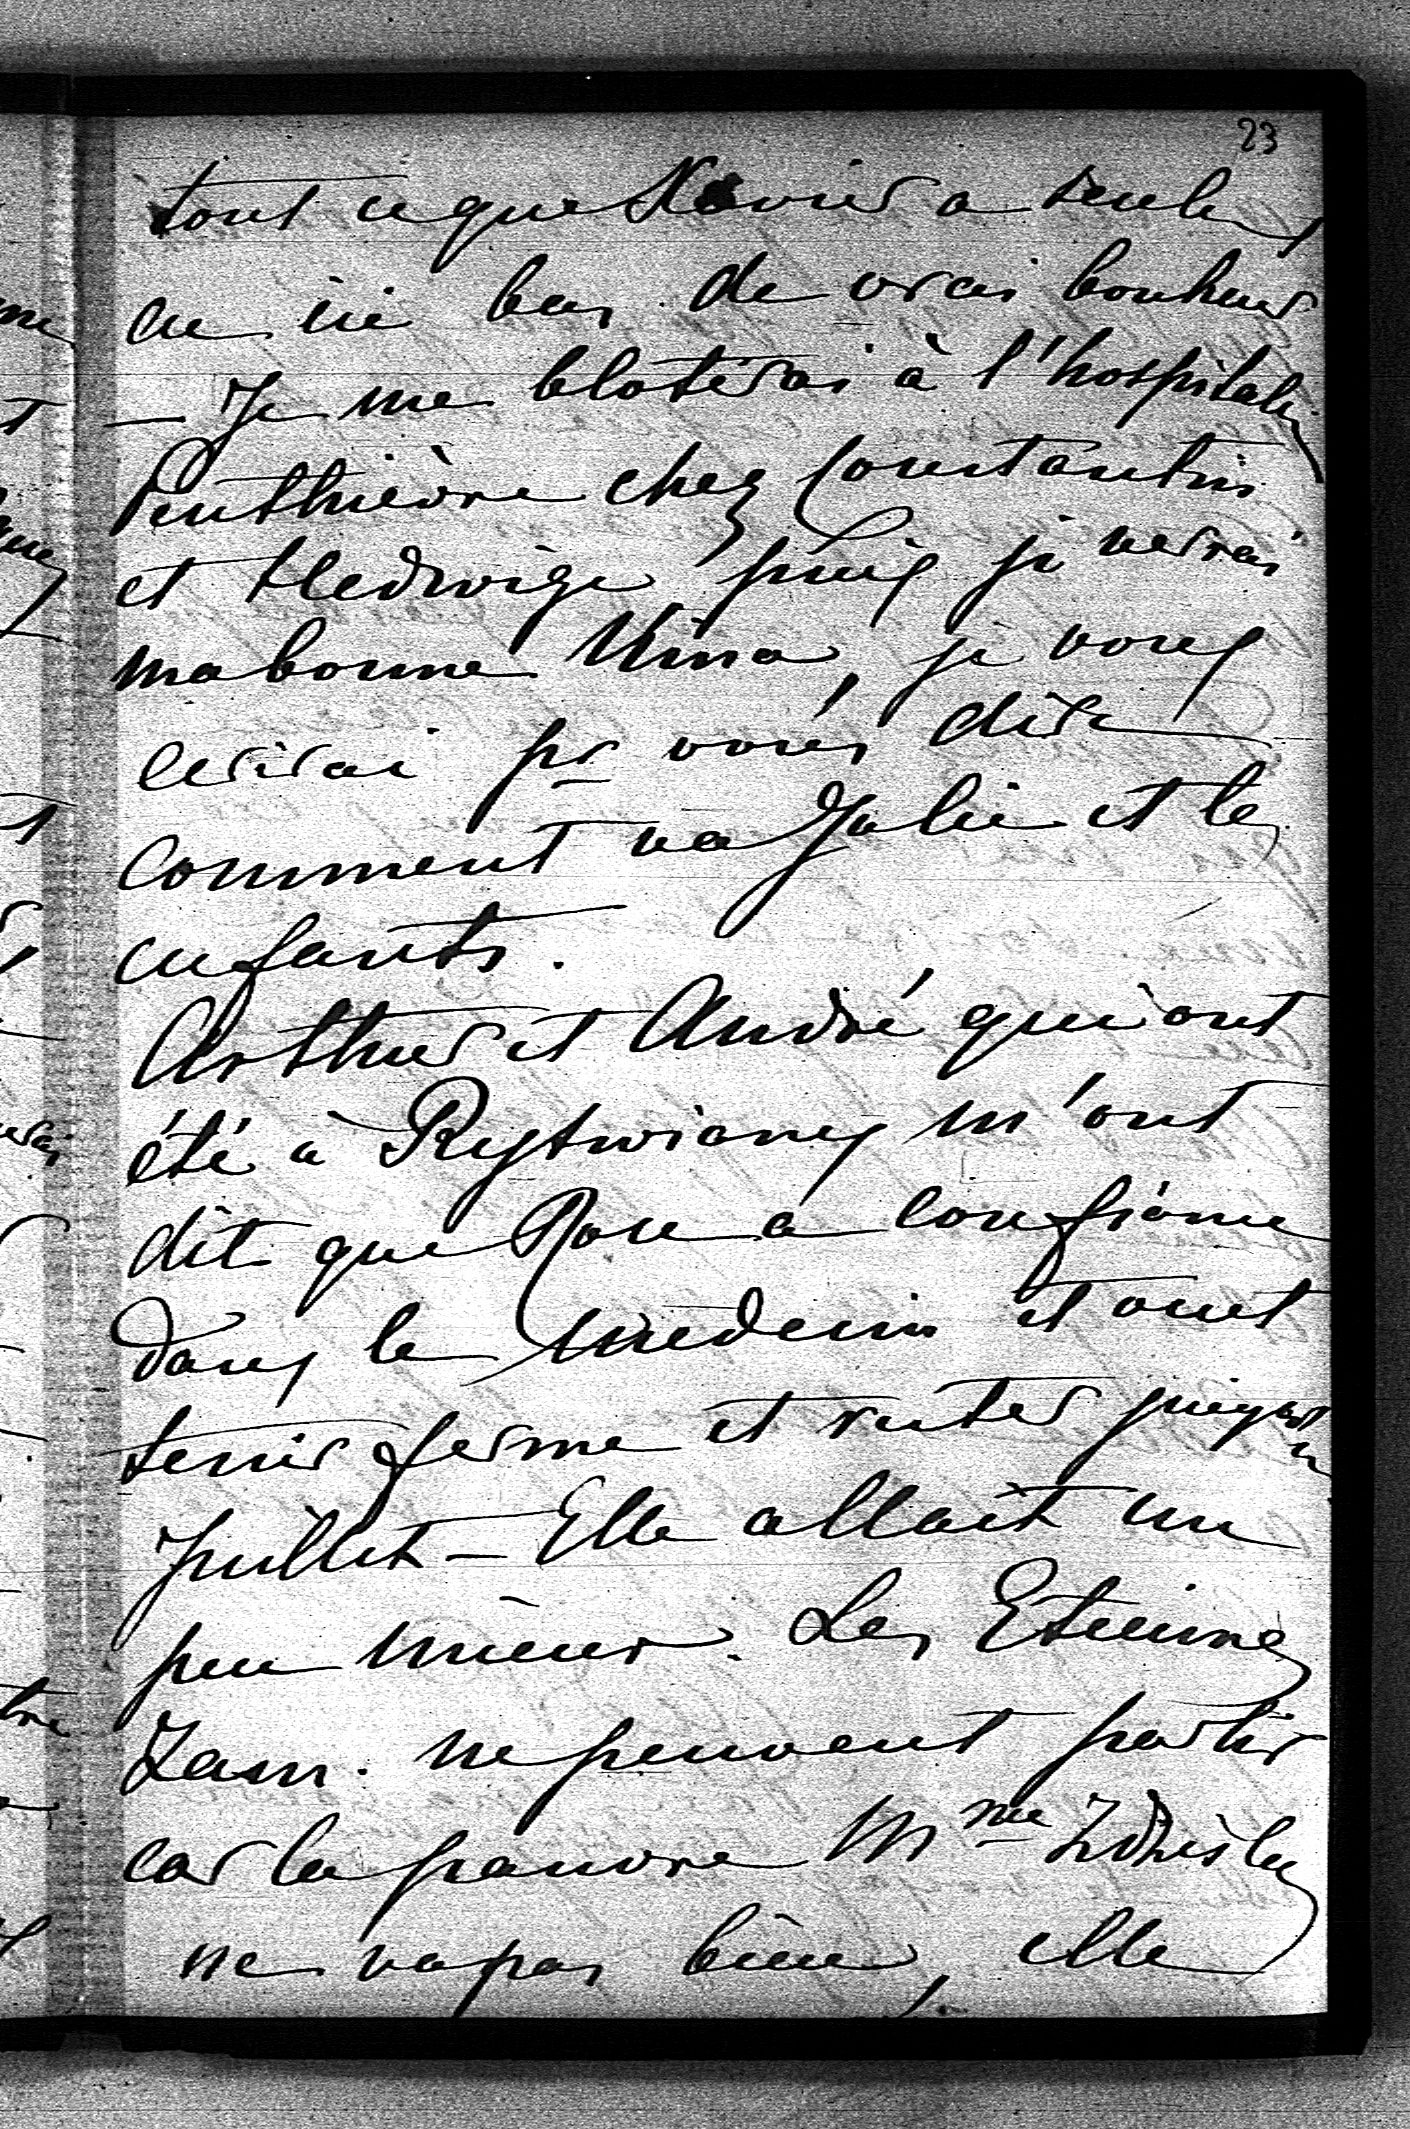 23
tout ce que Xavier a seule
ce ici bas de vrai bonheur
— Je me blotirai à l'hospitaly
Penthièvre chez Constantin
et Hedwige puis je verrai
ma bonne Mina, je vous
ecrirai pr vous dire
comment va Julie et les
enfants.
Arthur et André qui ont
été à Rytwiany m'ont
dit que Rose a confiance
dans le medecin et veut
tenir ferme et rester jusqu'en
Juillet — Elle allait un
peu mieux. Les Etienne
Zam. ne peuvent partir
car la pauvre Mme Zdzislas
ne va pas bien, elle